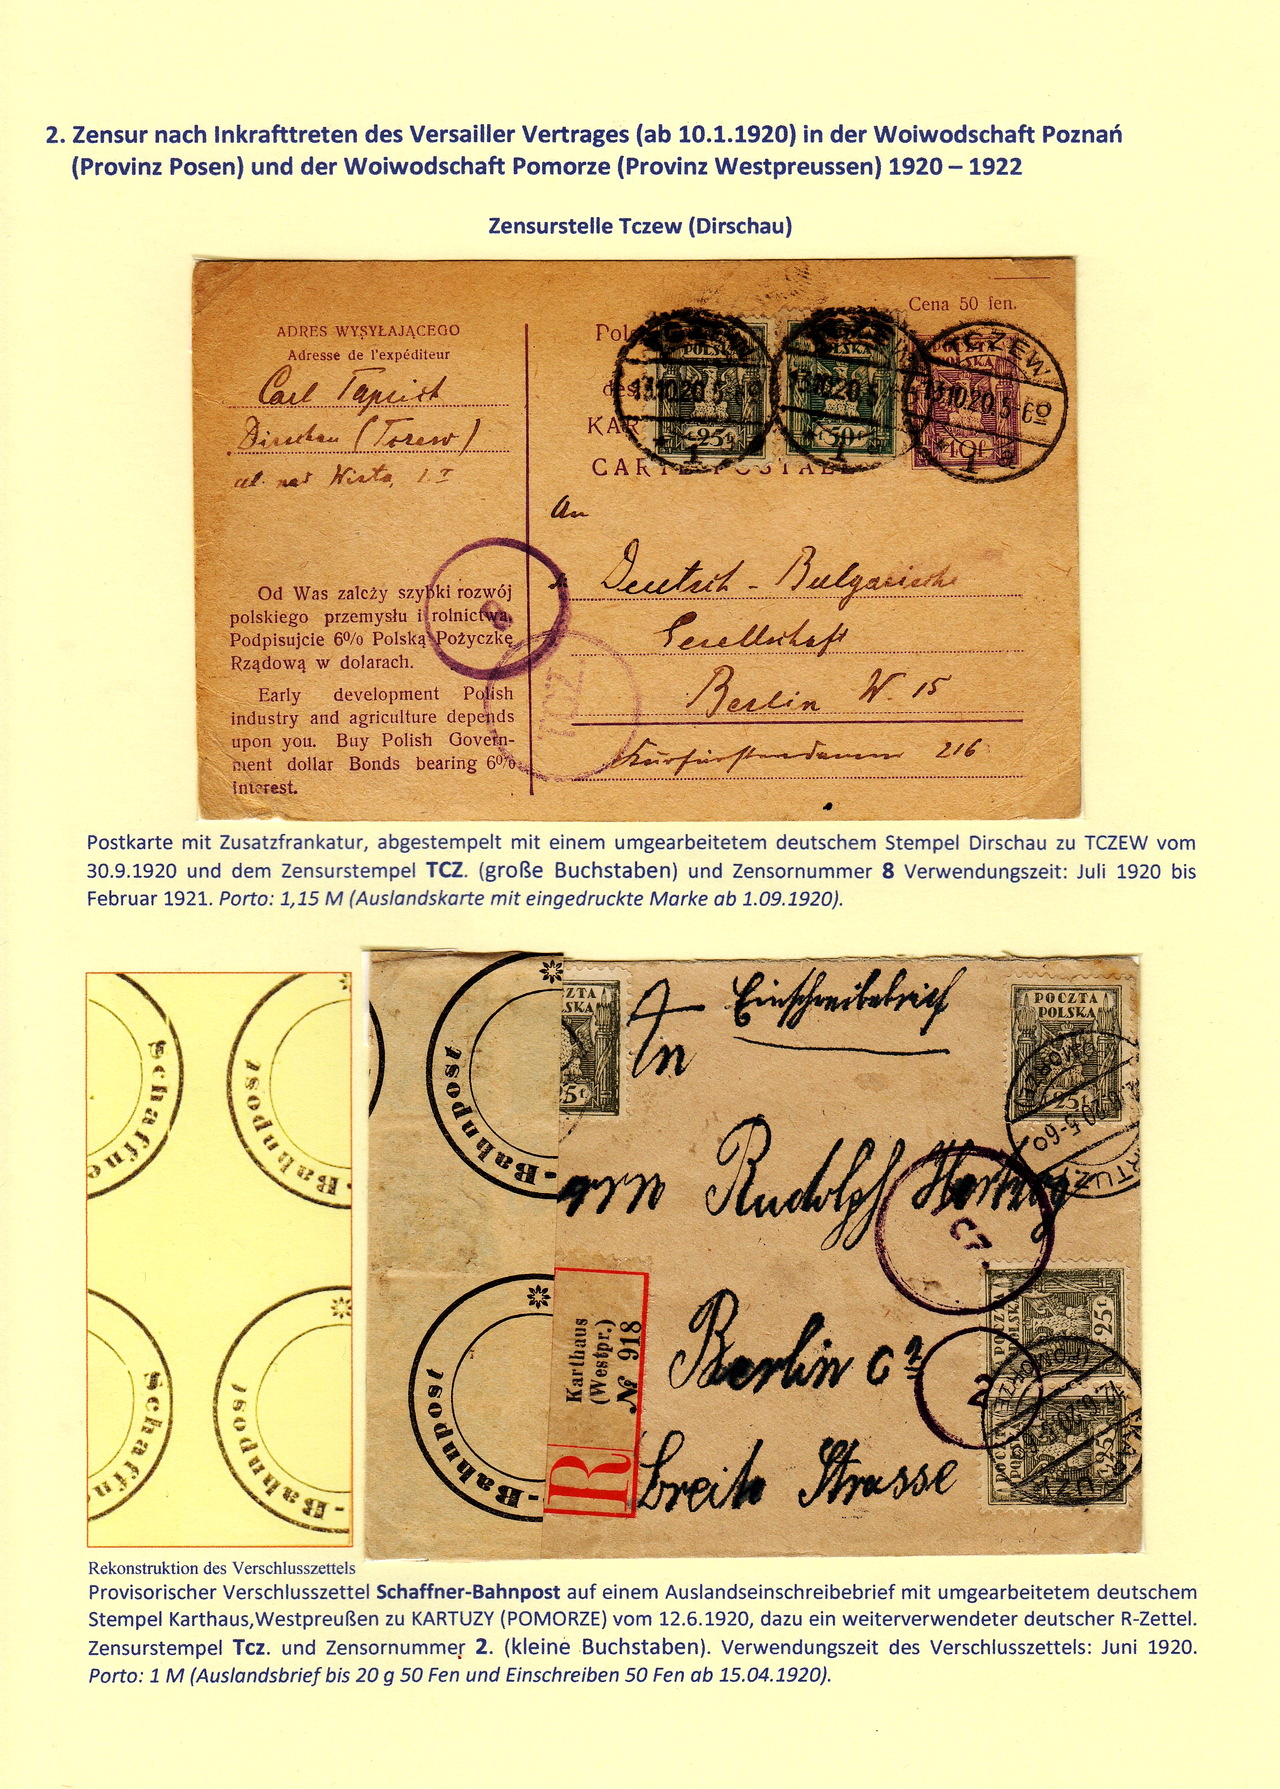 2. Zensur nach Inkrafttreten des Versailler Vertrages (ab 10.1.1920) in der Woiwodschaft Poznań
(Provinz Posen) und der Woiwodschaft Pomorze (Provinz Westpreussen) 1920 – 1922
Zensurstelle Tczew (Dirschau)
Cena 50 fen.
ADRES WYSYŁAJĄCEGO
Adresse de l'expéditeur
Carl
Dirschau (Tczew)
POLSKA
25f
13.10.20.5-6
1
POLSKA
50f
13.10.20.5-6
1
TCZEW
POLSKA
40f
13.10.20.5-6
1 a
KAR
CARTE POSTALE
An
Deutsch - Bulgarische
Gesellschaft
Berlin W. 15
Kurfürstendamm 216
8
TCZ.
Od Was zależy szybki rozwój
polskiego przemysłu i rolnictwa.
Podpisujcie 6% Polską Pożyczkę
Rządową w dolarach.
Early development Polish
industry and agriculture depends
upon you. Buy Polish Govern-
ment dollar Bonds bearing 6%
interest.
Postkarte mit Zusatzfrankatur, abgestempelt mit einem umgearbeitetem deutschem Stempel Dirschau zu TCZEW vom
30.9.1920 und dem Zensurstempel TCZ. (große Buchstaben) und Zensornummer 8 Verwendungszeit: Juli 1920 bis
Februar 1921. Porto: 1,15 M (Auslandskarte mit eingedruckte Marke ab 1.09.1920).
Schaffne
-Bahnpost
Schaffn
-Bahnpost
-Bahnpost
-Bahnpost
ZTA
LSKA
25f.
Einschreibebrief
An
POCZTA
POLSKA
25f
Rudolph Hertzog
Berlin C 2
Breite Strasse
Karthaus
(Westpr.)
№ 918
R
2
POCZTA
POLSKA
25f.
POCZTA
POLSKA
25f.
12.6.20.5-6
Rekonstruktion des Verschlusszettels
Provisorischer Verschlusszettel Schaffner-Bahnpost auf einem Auslandseinschreibebrief mit umgearbeitetem deutschem
Stempel Karthaus,Westpreußen zu KARTUZY (POMORZE) vom 12.6.1920, dazu ein weiterverwendeter deutscher R-Zettel.
Zensurstempel Tcz. und Zensornummer 2. (kleine Buchstaben). Verwendungszeit des Verschlusszettels: Juni 1920.
Porto: 1 M (Auslandsbrief bis 20 g 50 Fen und Einschreiben 50 Fen ab 15.04.1920).